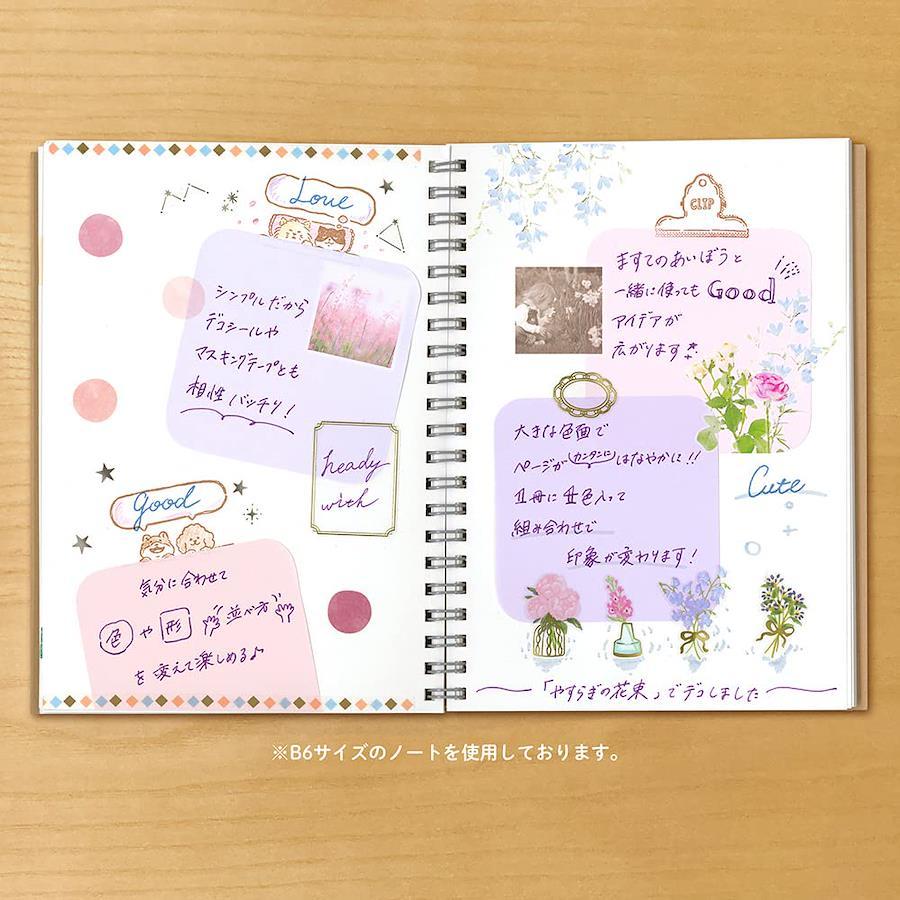 Love
シンプルだから
デコシールや
マスキングテープとも
相性バッチリ!
heady
with
Good
気分に合わせて
色や形並べ方
を変えて楽しめる♪
CLIP
ますてのあいぼうと
一緒に使ってもGood
アイデアが
広がります
大きな色面で
ページがカンタンにはなやかに!!
1冊に4色入って
組み合わせで
印象が変わります!
Cute
「やすらぎの花束」でデコしました
※B6サイズのノートを使用しております。